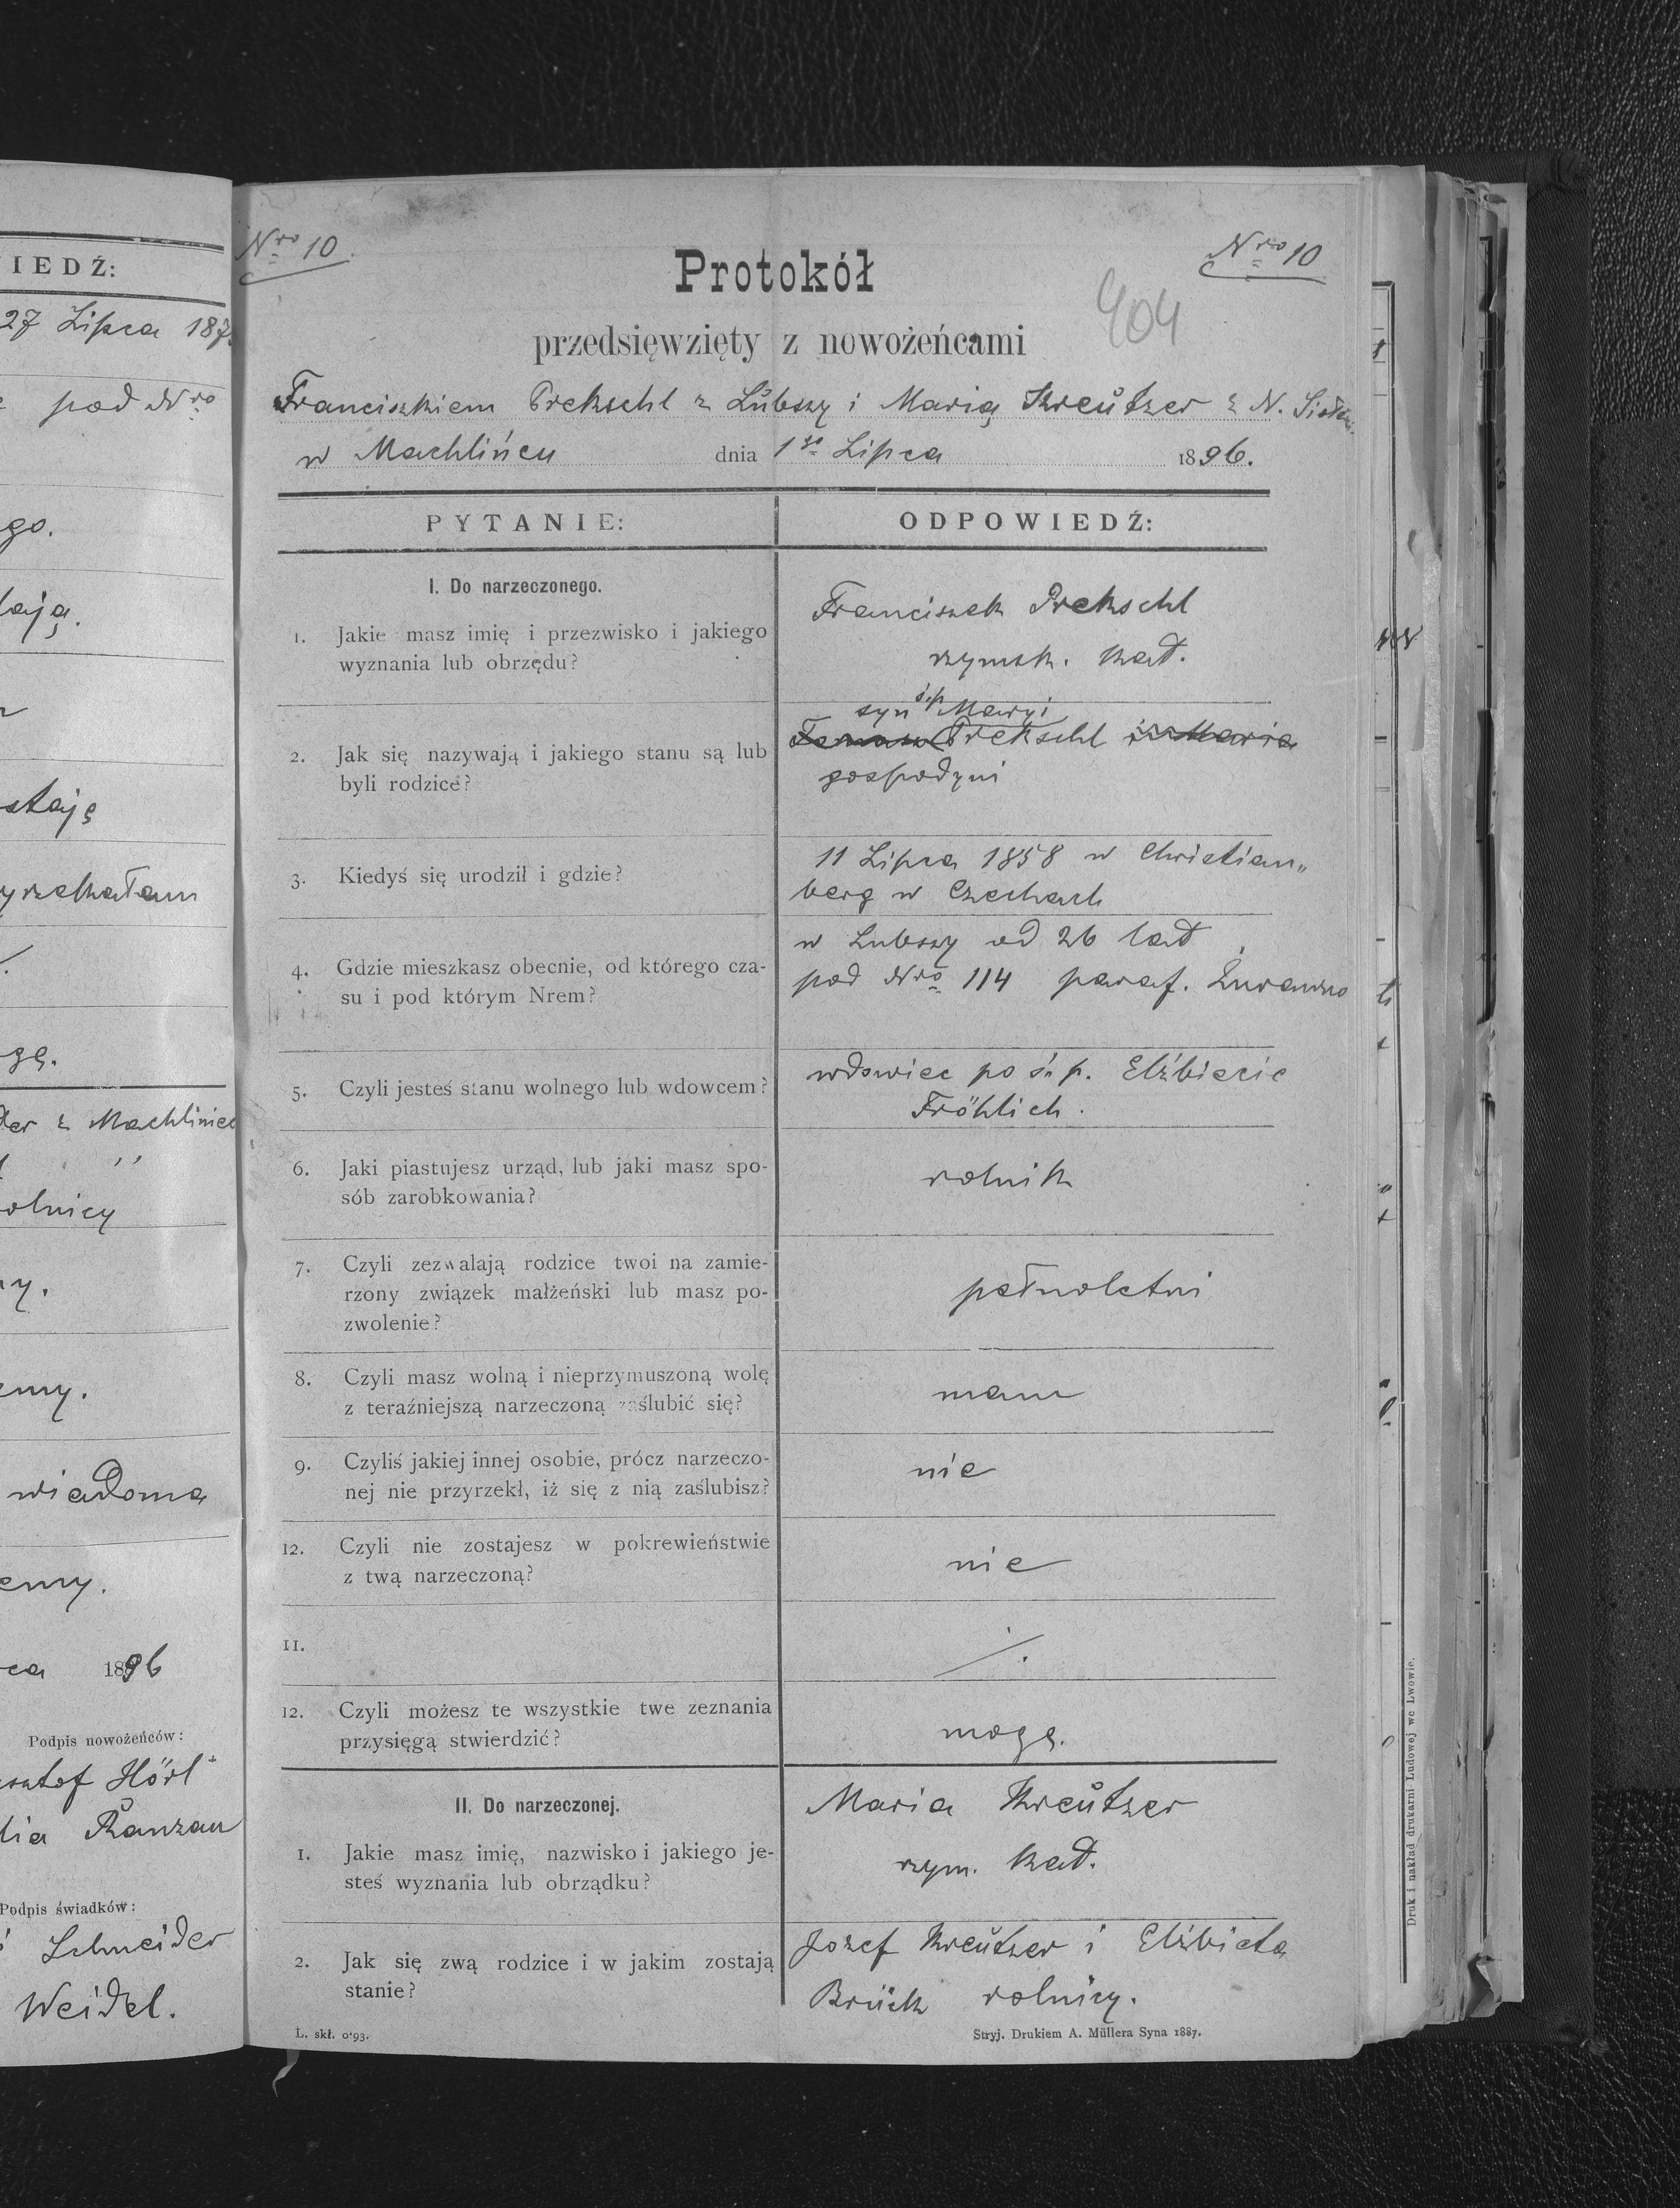 IEDŹ:
27 Lipca 187
pod Nro
go.
ają.
staję
yrzekałam
gę.
er z Machliniec
olnicy
y.
emy.
wiadoma
emy.
ca 1896
Podpis nowożeńców:
sztof Hörl
lia Ranzau
Podpis świadków:
Schneider
Weidel.
Nro 10
Nro 10
Protokół
404
przedsięwzięty z nowożeńcami
Franciszkiem Prekschl z Lŭbszy i Marią Kreŭtzer z N.
w Machlińcu dnia 1go Lipca 1896.
PYTANIE: ODPOWIEDŹ:
I. Do narzeczonego.
1. Jakie masz imię i przezwisko i jakiego
wyznania lub obrzędu?
Franciszek Prekschl
rzymsk. kat.
2. Jak się nazywają i jakiego stanu są lub
byli rodzice?
syn ś.p. Maryi
Prekschl i Maria
gospodyni
3. Kiedyś się urodził i gdzie?
11 Lipca 1858 w Christian„
berg w Czechach
4. Gdzie mieszkasz obecnie, od którego cza-
su i pod którym Nrem?
w Lubszy od 26 lat
pod Nro 114 paraf. Żurawno
5. Czyli jesteś stanu wolnego lub wdowcem?
wdowiec po ś. p. Elżbiecie
Fröhlich.
6. Jaki piastujesz urząd, lub jaki masz spo-
sób zarobkowania?
rolnik
7. Czyli zezwalają rodzice twoi na zamie-
rzony związek małżeński lub masz po-
zwolenie?
pełnoletni
8. Czyli masz wolną i nieprzymuszoną wolę
z teraźniejszą narzeczoną zaślubić się?
mam
9. Czyliś jakiej innej osobie, prócz narzeczo-
nej nie przyrzekł, iż się z nią zaślubisz?
nie
12. Czyli nie zostajesz w pokrewieństwie
z twą narzeczoną?
nie
11.
./.
12. Czyli możesz te wszystkie twe zeznania
przysięgą stwierdzić?
mogę.
II. Do narzeczonej.
1. Jakie masz imię, nazwisko i jakiego je-
steś wyznania lub obrządku?
Maria Kreŭtzer
rzym. kat.
2. Jak się zwą rodzice i w jakim zostają
stanie?
Jozef Kreŭtzer i Elżbieta
Brück rolnicy.
L. skł. 0·93.
Stryj. Drukiem A. Müllera Syna 1887.
Druk i nakład drukarni Ludowej we Lwowie.